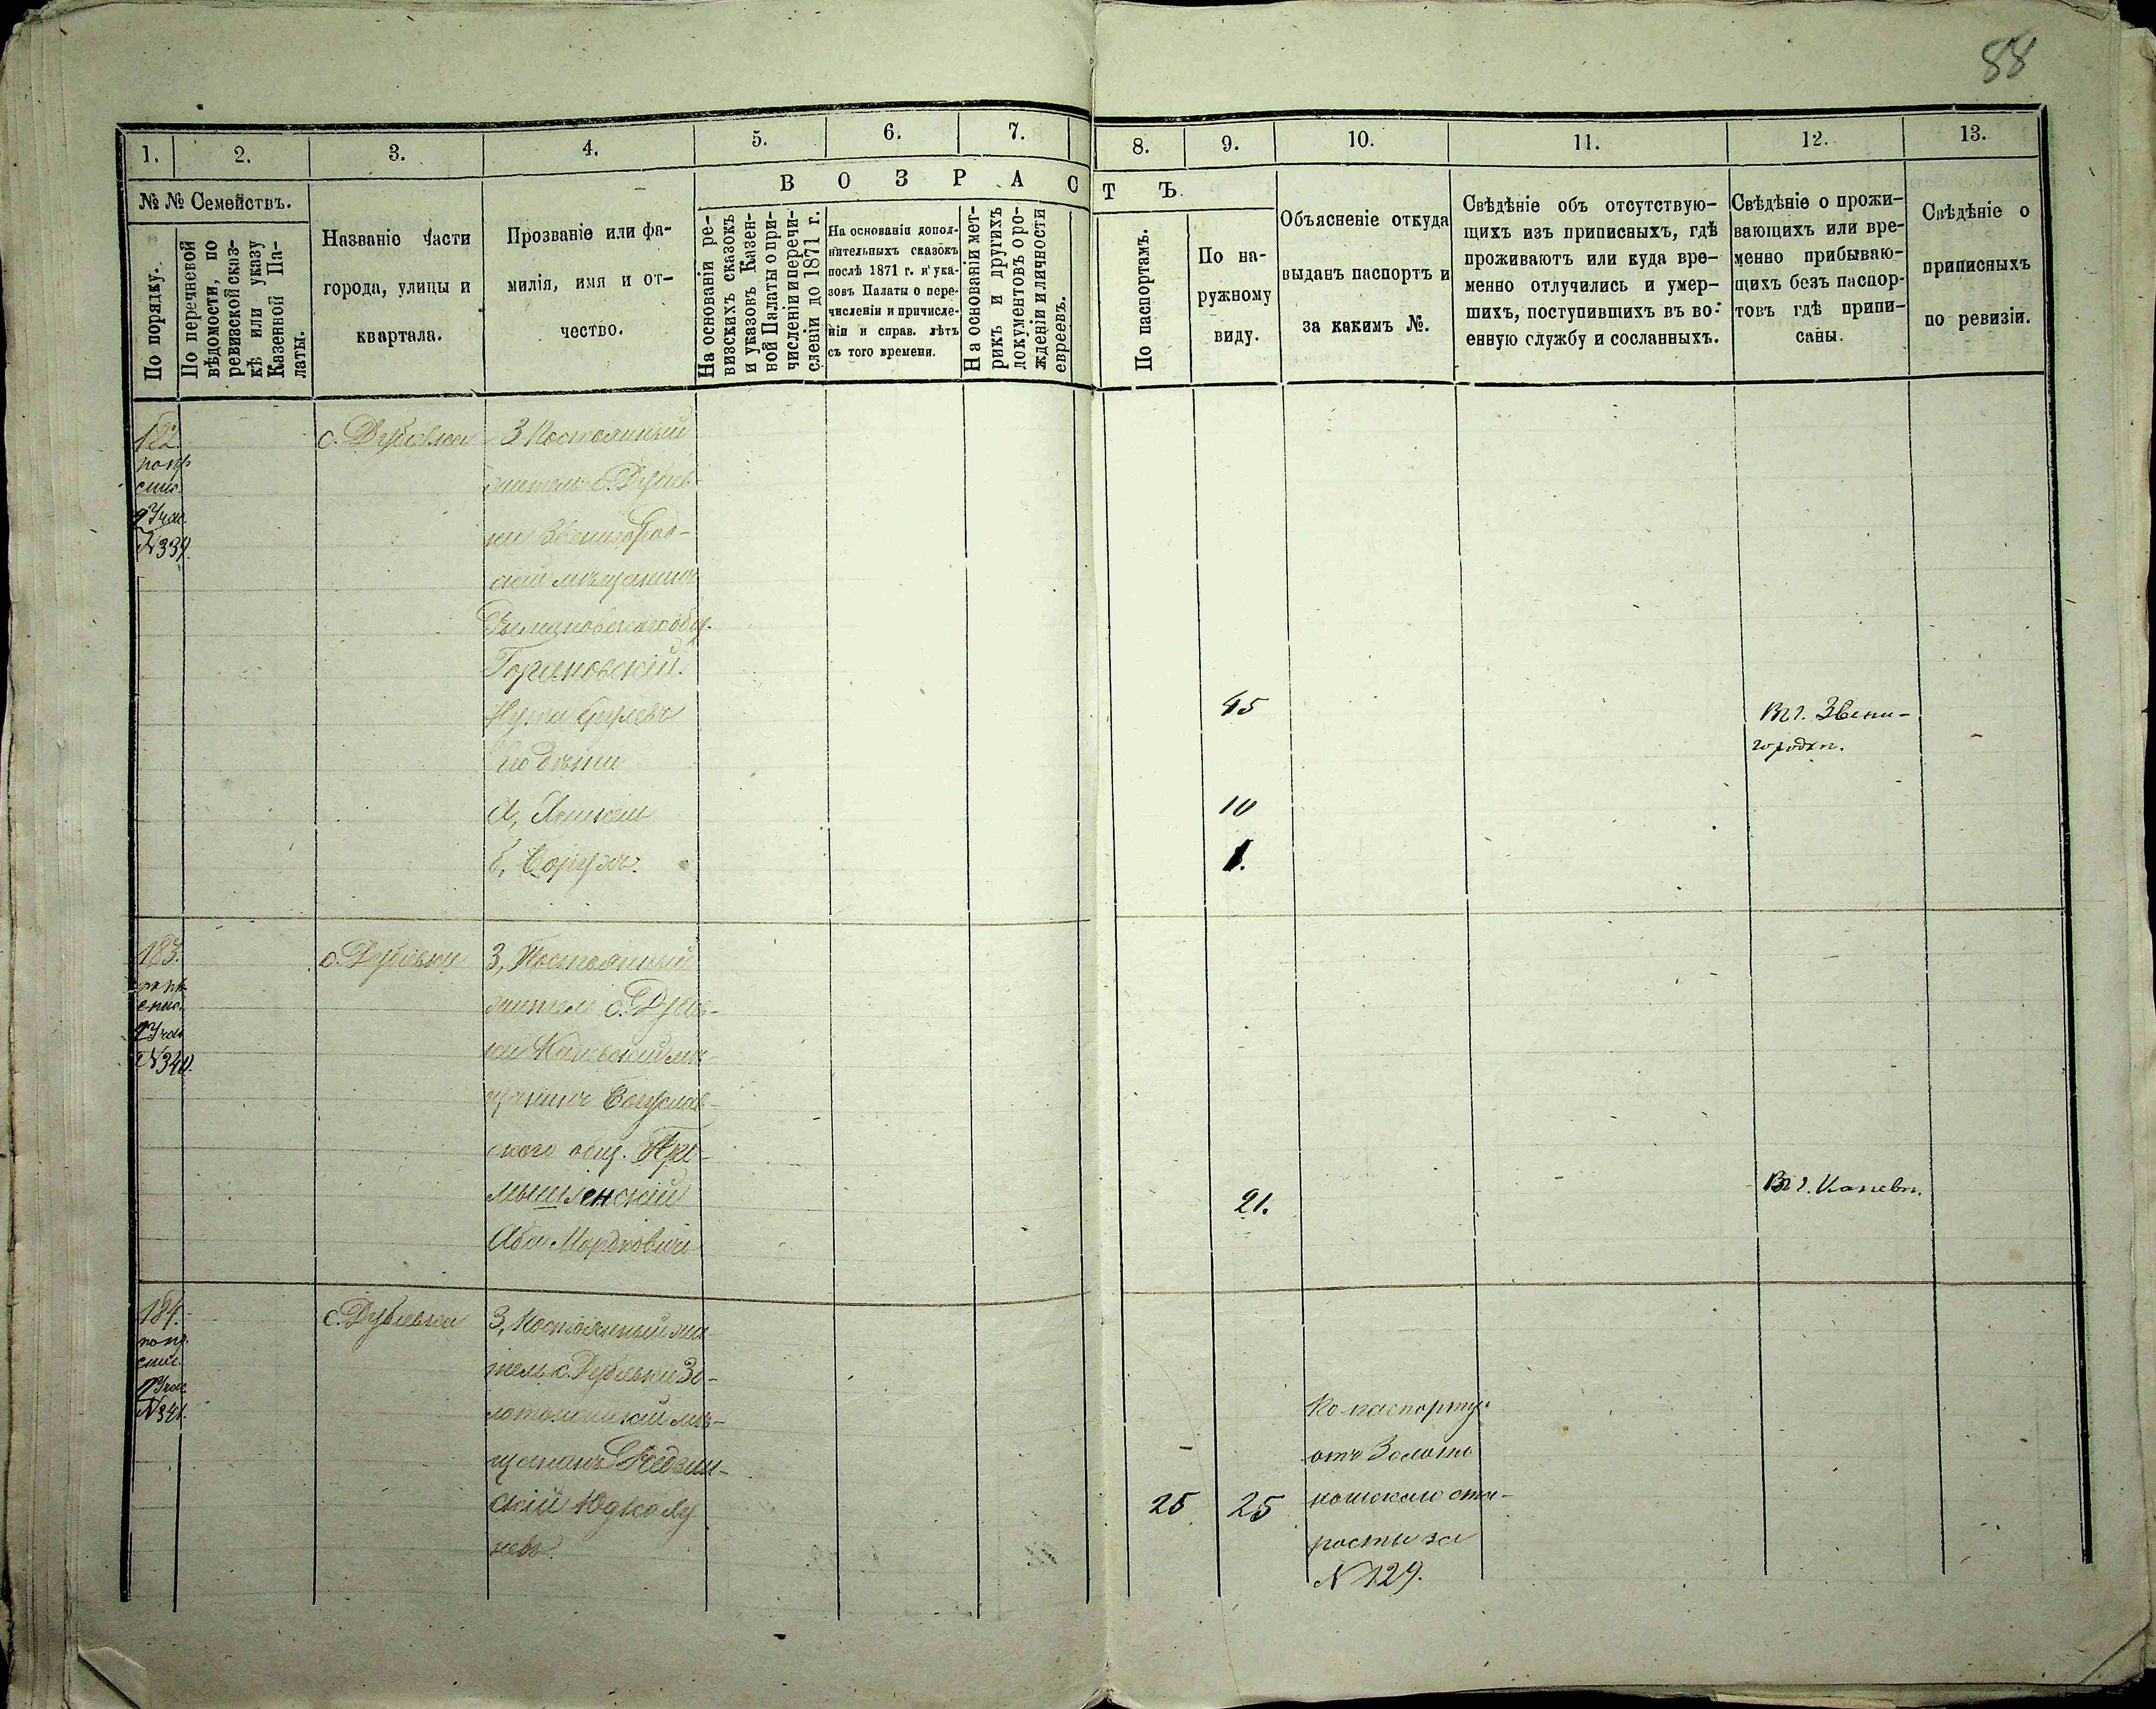 88
1. 2. 3. 4. 5. 6. 7. 8. 9. 10. 11. 12. 13.
№ № Семействъ.
По порядку.
По перечневой
вѣдомости, по
ревизской сказ-
кѣ или указу
Казенной Па-
латы.
Названіе части
города, улицы и
квартала.
Прозваніе или фа-
милія, имя и от-
чество.
В О З Р А С Т Ъ.
На основаніи ре-
визскихъ сказокъ
и указовъ Казен-
ной Палаты о при-
численіи и перечи-
сленіи до 1871 г.
На основаніи допол-
нительныхъ сказокъ
послѣ 1871 г. и ука-
зовъ Палаты о пере-
численіи и причисле-
ніи и справ. лѣтъ
съ того времени.
На основаніи мет-
рикъ и другихъ
документовъ о ро-
жденіи и личности
евреевъ.
По паспортамъ.
По на-
ружному
виду.
Объясненіе откуда
выданъ паспортъ и
за какимъ №.
Свѣдѣніе объ отсутствую-
щихъ изъ приписныхъ, гдѣ
проживаютъ или куда вре-
менно отлучились и умер-
шихъ, поступившихъ въ во-
енную службу и сосланныхъ.
Свѣдѣніе о прожи-
вающихъ или вре-
менно прибываю-
щихъ безъ паспор-
товъ гдѣ припи-
саны.
Свѣдѣніе о
приписныхъ
по ревизіи.
182
N 339.
с. Дубіевка
3 Постоянный
житель с. Дубіев-
ки Звенигород-
скій мѣщанинъ
общ.
Нута
Его дѣти
а, Янкель
б, Борухъ.
45
10
1.
Въ г. Звени-
городкѣ.
183.
N 340.
с. Дубіевка
3, Постоянный
житель с. Дубіев-
ки Каневскій мѣ-
щанинъ Богуслав-
скаго общ. Пре-
мышленскій
Аба Мордковичъ
21.
Въ г. Каневѣ.
184.
N 341.
с. Дубіевка
3, Постоянный жи-
тель с. Дубіевки Зо-
лотоношскій мѣ-
щанинъ
скій Юдко
25 25
По паспорту
отъ Золото
ношскаго ста-
росты за
N 129.